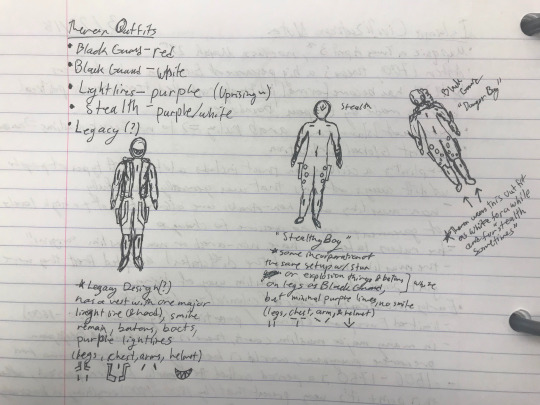 Theron Outfits
• Black Guard - red
• Black Guard - white
• Lightlines - purple (Uprising
• Stealth - purple/white
• Legacy (?)
Stealth
Black Guard
"Danger Boy"
wears this outfit
as white for a while
and for "stealth
sometimes"
"Stealthy Boy"
* some incorporation of
the same setup w/ stun
or explosion things & batons
on legs as Black Guard,
white
but minimal purple lines, no smile
(legs, chest, arms, & helmet)
* Legacy Design (?)
has a vest with one major
light line (& hood), smile
batons, boots,
purple lightlines
(legs, chest, arms, helmet)